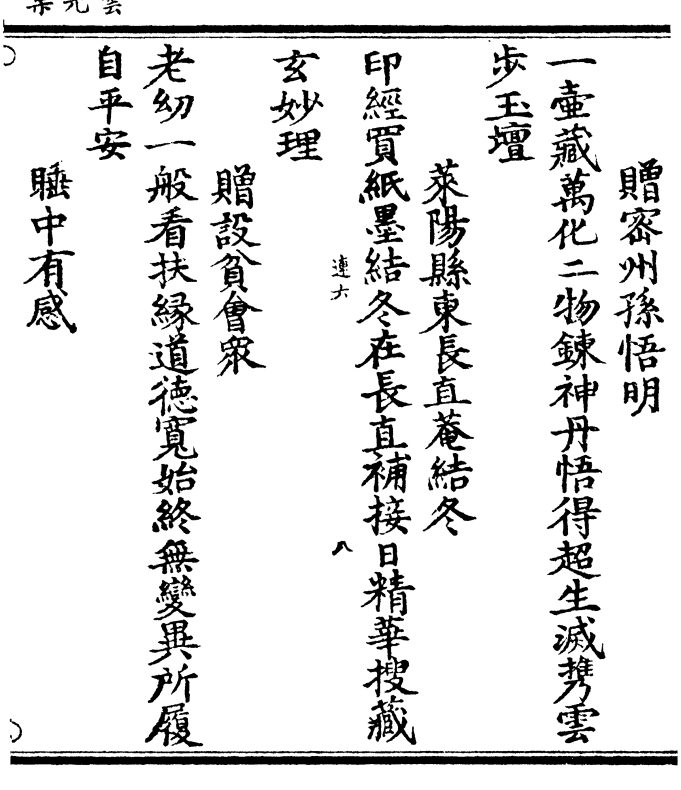 贈宻州孫悟明
一壷藏萬化二物鍊神丹悟得超生滅携雲
步玉壇
萊陽縣東長直菴結冬
印經買紙墨結冬在長直補接日精華搜藏
玄妙理
連六
八
贈設貧會衆
老幼一般看扶縁道德寬始終無變異所履
自平安
睡中有感